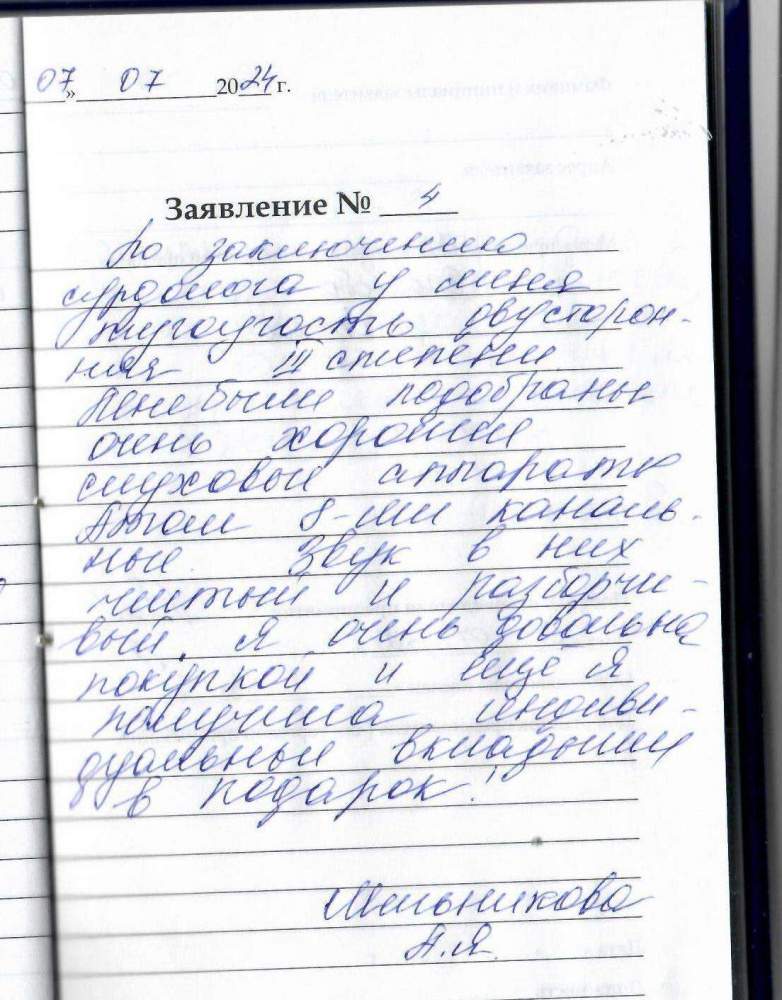 07 » 07 2024 г.
Заявление № 4
По заключению
сурдолога у меня
тугоухость двусторон-
няя III степени
Мне были подобраны
очень хорошие
слуховые аппараты
8-ми каналь-
ные. Звук в них
чистый и разборчи-
вый. Я очень довольна
покупкой и ещё я
получила индиви-
дуальные вкладыши
в подарок!
Мельникова
А.Я.